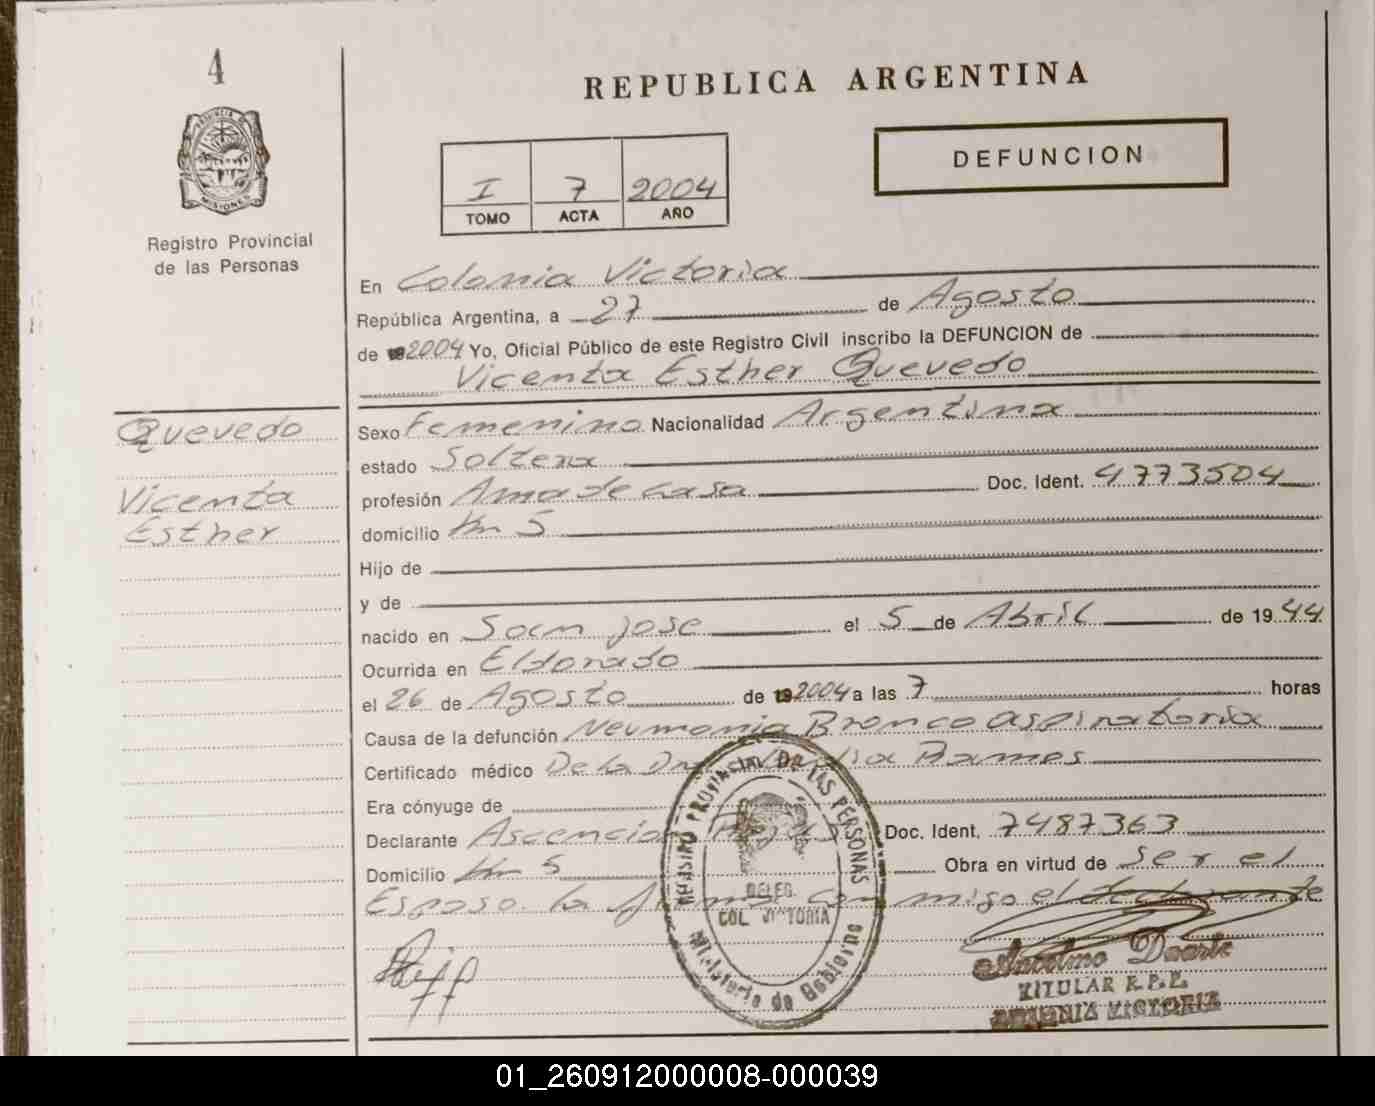 4
REPUBLICA ARGENTINA
DEFUNCION
I 7 2004
TOMO ACTA AÑO
PROVINCIA DE
MISIONES
Registro Provincial
de las Personas
En Colonia Victoria
República Argentina, a 27 de Agosto
de 2004 Yo, Oficial Público de este Registro Civil inscribo la DEFUNCION de
Vicenta Esther Quevedo
Quevedo
Vicenta
Esther
Sexo Femenino Nacionalidad Argentina
estado Soltera
profesión Ama de casa Doc. Ident. 4773504
domicilio Km 5
Hijo de
y de
nacido en San jose el 5 de Abril de 1944
Ocurrida en Eldorado
el 26 de Agosto de 2004 a las 7 horas
Causa de la defunción Neumonia Bronco aspiratoria
Certificado médico De la Dra Ramos
Era cónyuge de
Declarante Ascencion Doc. Ident. 7487363
Domicilio Km 5 Obra en virtud de ser el
Esposo. la firma conmigo el declarante
REGISTRO PROVINCIAL DE LAS PERSONAS
DELEG.
COL. VICTORIA
Ministerio de Gobierno
Anselmo Duarte
TITULAR R.P.P.
COLONIA VICTORIA
01_260912000008-000039